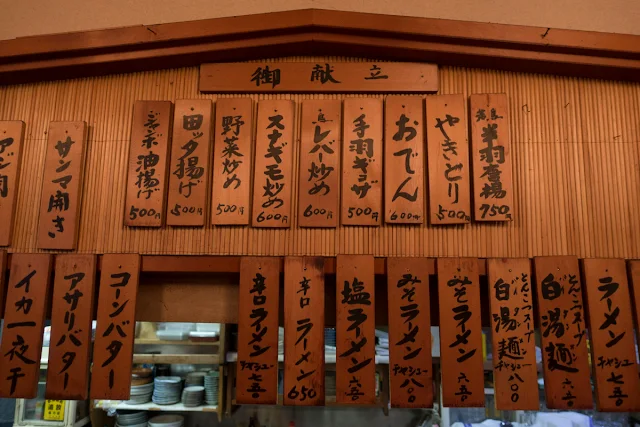 御献立
名物
半羽唐揚
750円
やきとり
500円
おでん
600円
手羽ギョーザ
500円
レバー炒め
600円
スナギモ炒め
600円
野菜炒め
500円
田ツタ揚げ
500円
ジャンボ油揚げ
500円
サンマ開き
ラーメン
チャーシュー
とんこつスープ
白湯麺
六五〇
とんこつスープ
白湯麺
チャーシュー 八〇〇
みそラーメン
六五〇
みそラーメン
チャーシュー 八〇〇
塩ラーメン
六五〇
辛口ラーメン
650
辛口ラーメン
チャシュー 七五〇
コーンバター
アサリバター
イカ一夜干